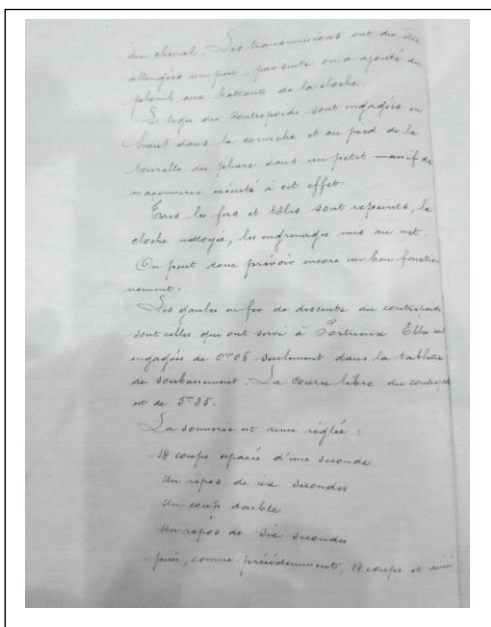 du cheval. Les transmissions ont dû être
allongées un peu, par suite on a ajouté du
plomb aux battants de la cloche.
Les tiges du contrepoids sont engagées en
haut dans la corniche et au pied de la
tourelle du phare dans un petit massif de
maçonnerie exécuté à cet effet.
Tous les fers et tôles sont repeints, la
cloche nettoyée, les engrenages mis au net.
On peut donc prévoir encore un bon fonction
nement.
Les gaules en fer de descente du contrepoids
sont celles qui ont servi à Portrieux. Elles sont
engagées de 0m06 seulement dans la tablette
de soubassement. La course libre du contrepoids
est de 5m35.
La sonnerie est ainsi réglée :
18 coups espacés d'une seconde
Un repos de six secondes
Un coup double
Un repos de six secondes
puis, comme précédemment, 18 coups et ainsi